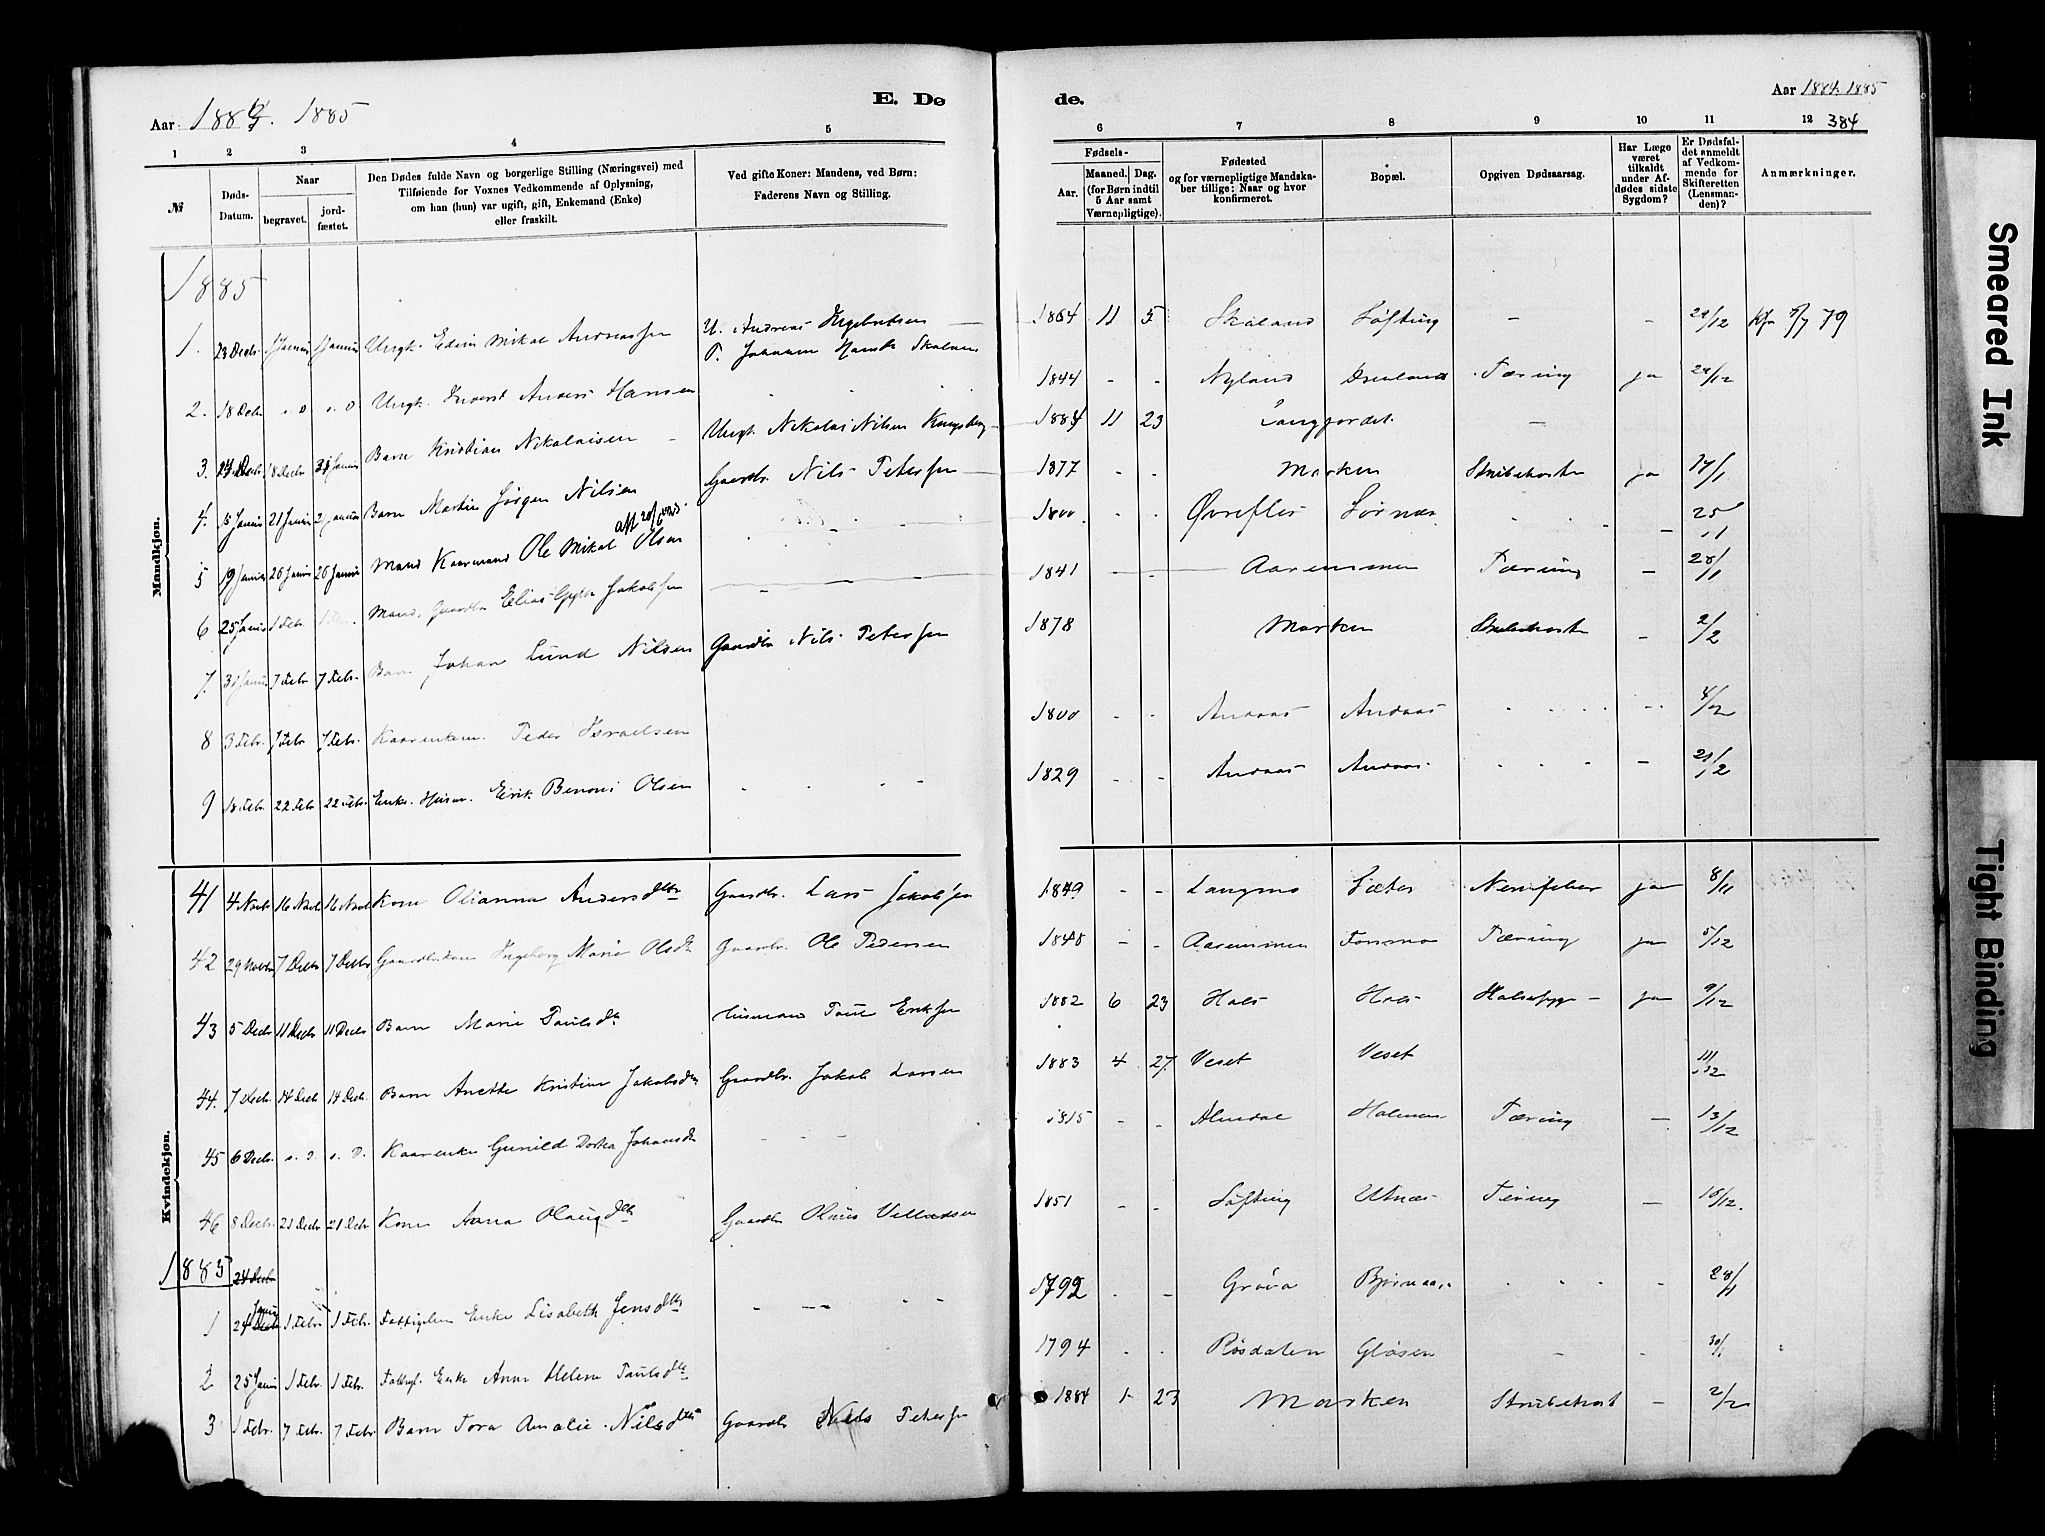 Aar 1884. 1885
E. Dø
de.
Aar 1884. 1885
384
1 2 3 4 5 6 7 8 9 10 11 12
№
Døds-Datum.
Naar
begravet.
jord-fæstet.
Den Dødes fulde Navn og borgerlige Stilling (Næringsvei) med
Tilføiende for Voxnes Vedkommende af Oplysning,
om han (hun) var ugift, gift, Enkemand (Enke)
eller fraskilt.
Ved gifte Koner: Mandens, ved Børn:
Faderens Navn og Stilling.
Fødsels-
Aar.
Maaned. Dag.
(for Børn indtil
5 Aar samt
Værnepligtige).
Fødested
og for værnepligtige Mandska-
ber tillige: Naar og hvor
konfirmeret.
Bopæl.
Opgiven Dødsaarsag.
Har Læge
været
tilkaldt
under Af-
dødes sidste
Sygdom?
Er Dødsfal-
det anmeldt
af Vedkom-
mende for
Skifteretten
(Lensman-
den)?
Anmærkninger.
Mandkjøn.
1885
1. 23 Decbr. 1 Januar 1 Januar Ungk. Edin Mikal Andreassen U. Andreas Ingebrigtsen 1864 11 5 Skaland Løfting - - 29/12 79
2. 18 Decbr. s. D. s. D. Ungk. Anders Hansen 1844 - - Nyland Tæring ja 29/12
3. 24 Decbr. 18 Decbr. Januar Barn Kristian Nikolaisen Ungk. Nikolai Nilsen 1884 11 23 Langfjordet -
4. 15 Januar 21 Januar 21 Januar Barn Martin Jørgen Nilsen Gaardbr. Nils Petersen 1877 - - Marken Strubehoste ja 17/1
5 19 Januar 26 Januar 26 Januar Mand Kaarmand Ole Mikal Olsen 1800 Sørnes - 25/1
6 25 Januar 1 Febr. 1 Febr. Mand, Gaardbr. Elias Jakobsen 1841 - - Aaremmen Tæring - 28/1
7. 31 Januar 7 Febr. 7 Febr. Barn Johan Lund Nilsen Gaardbr. Nils Petersen 1878 Marken Strubehoste - 2/2
8 3 Febr. 7 Febr. 7 Febr. Kaarenkem. Peder Israelsen 1800 - - Andaas Andaas 4/2
9 18 Febr. 22 Febr. 22 Febr. Enkem. Husm. Erik Benoni Olsen 1829 - - Andaas Andaas - 21/2
Kvindekjøn.
41 4 Novb. 16 Novb. 16 Novb. Kone Olianna Andersdtr. Gaardbr. Lars Jakobsen 1849 - - Langmo Sæter Nervefeber ja 8/11
42 29 Novbr. 7 Decbr. 7 Decbr. Gaardbr.kone Ingeborg Marie Olsdt. Gaardbr. Ole Pedersen 1848 - - Aaremmen Forsmo Tæring ja 5/12
43 5 Decbr. 11 Decbr. 11 Decbr. Barn Marie Paulsdt. Husmand Paul Eriksen 1882 6 23 Hals Hals Halssyge - ja 9/12
44. 7 Decbr. 14 Decbr. 14 Decbr. Barn Anette Kristine Jakobsdtr. Gaardbr. Jakob Larsen 1883 4 27. Veset Veset 11/12
45 6 Decbr. s. D. s. D. Kaarenke Gunild Dortea Johansdt. - - - 1815 - - Almdal Holmen Tæring - 13/12
46 8 Decbr. 21 Decbr. 21 Decbr. Kone Anna Olausdtr. Gaardbr. Olaus Villadsen 1851 - - Løfting Utnæs Tæring - 10/12.
1885 24 Decbr.
1 24 Januar 1 Febr. 1 Febr. Fattiglem Enke Lisabeth Jensdtr. 1792 - - Grøva Bjørnaas 28/1
2 25 Januar 1 Febr. 1 Febr. Fattigl. Enke Anne Helene Paulsdtr. 1794 - - Røsdalen Gløsen - - 30/1
3 1 Febr. 7 Febr. 7 Febr. Barn Tora Amalie Nilsdtr. Gaardbr. Nils Petersen 1884 1 23 Marken Strubehost - 2/2
Smeared Ink
Tight Binding